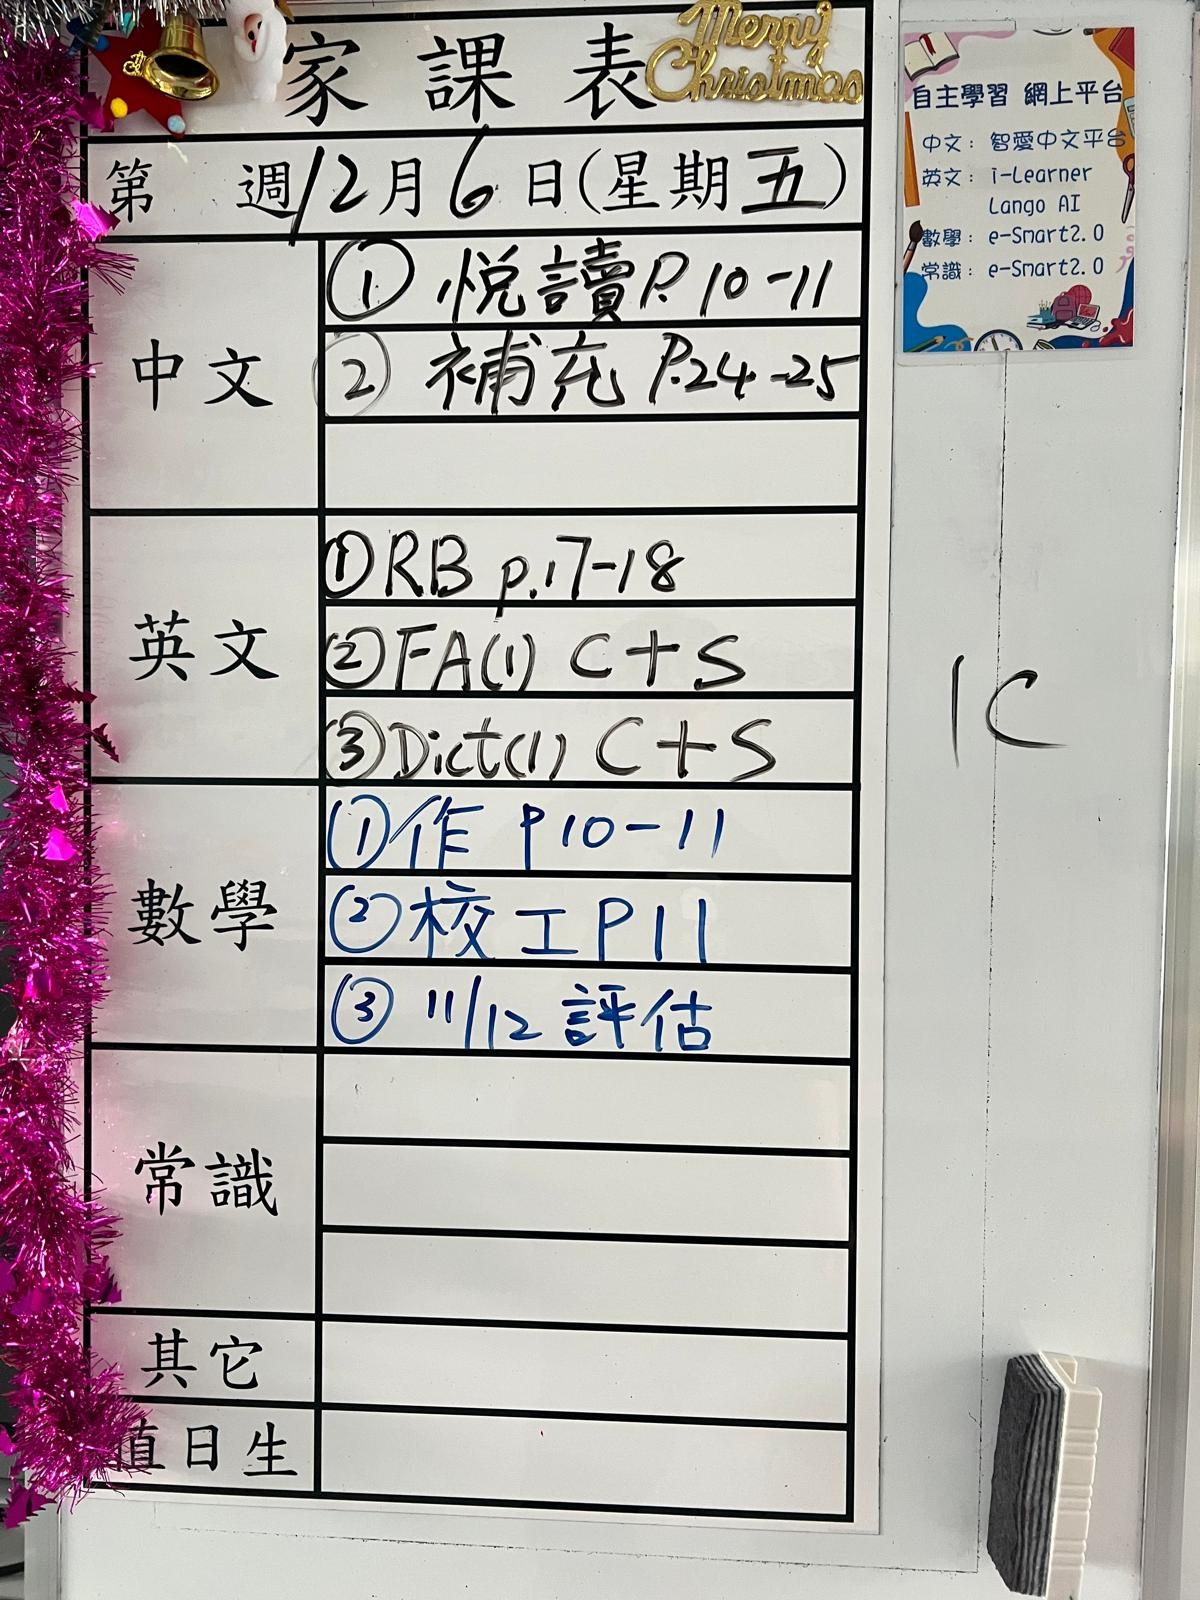 家課表
Merry
Christmas
第 週 12月6日(星期五)
中文
① 悅讀P.10-11
② 補充 P.24-25
英文
①RB p.17-18
②FA(1) C+S
③Dict(1) C+S
數學
①作 P10-11
②校工P11
③ 11/12 評估
常識
其它
值日生
自主學習 網上平台
中文: 智愛中文平台
英文: i-Learner
Lango AI
數學: e-Smart2.0
常識: e-Smart2.0
1C